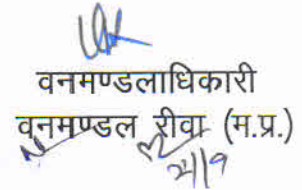 वनमण्डलाधिकारी
वनमण्डल रीवा (म.प्र.)